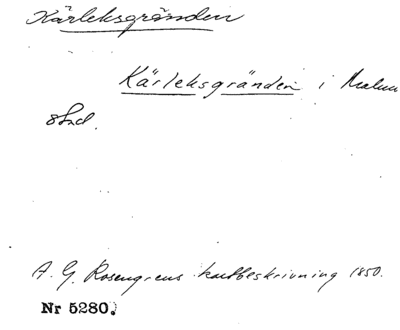 Kärleksgränden
Kärleksgränden i Malmö
A. G. Rosengrens kartbeskrivning 1850.
Nr 5280.